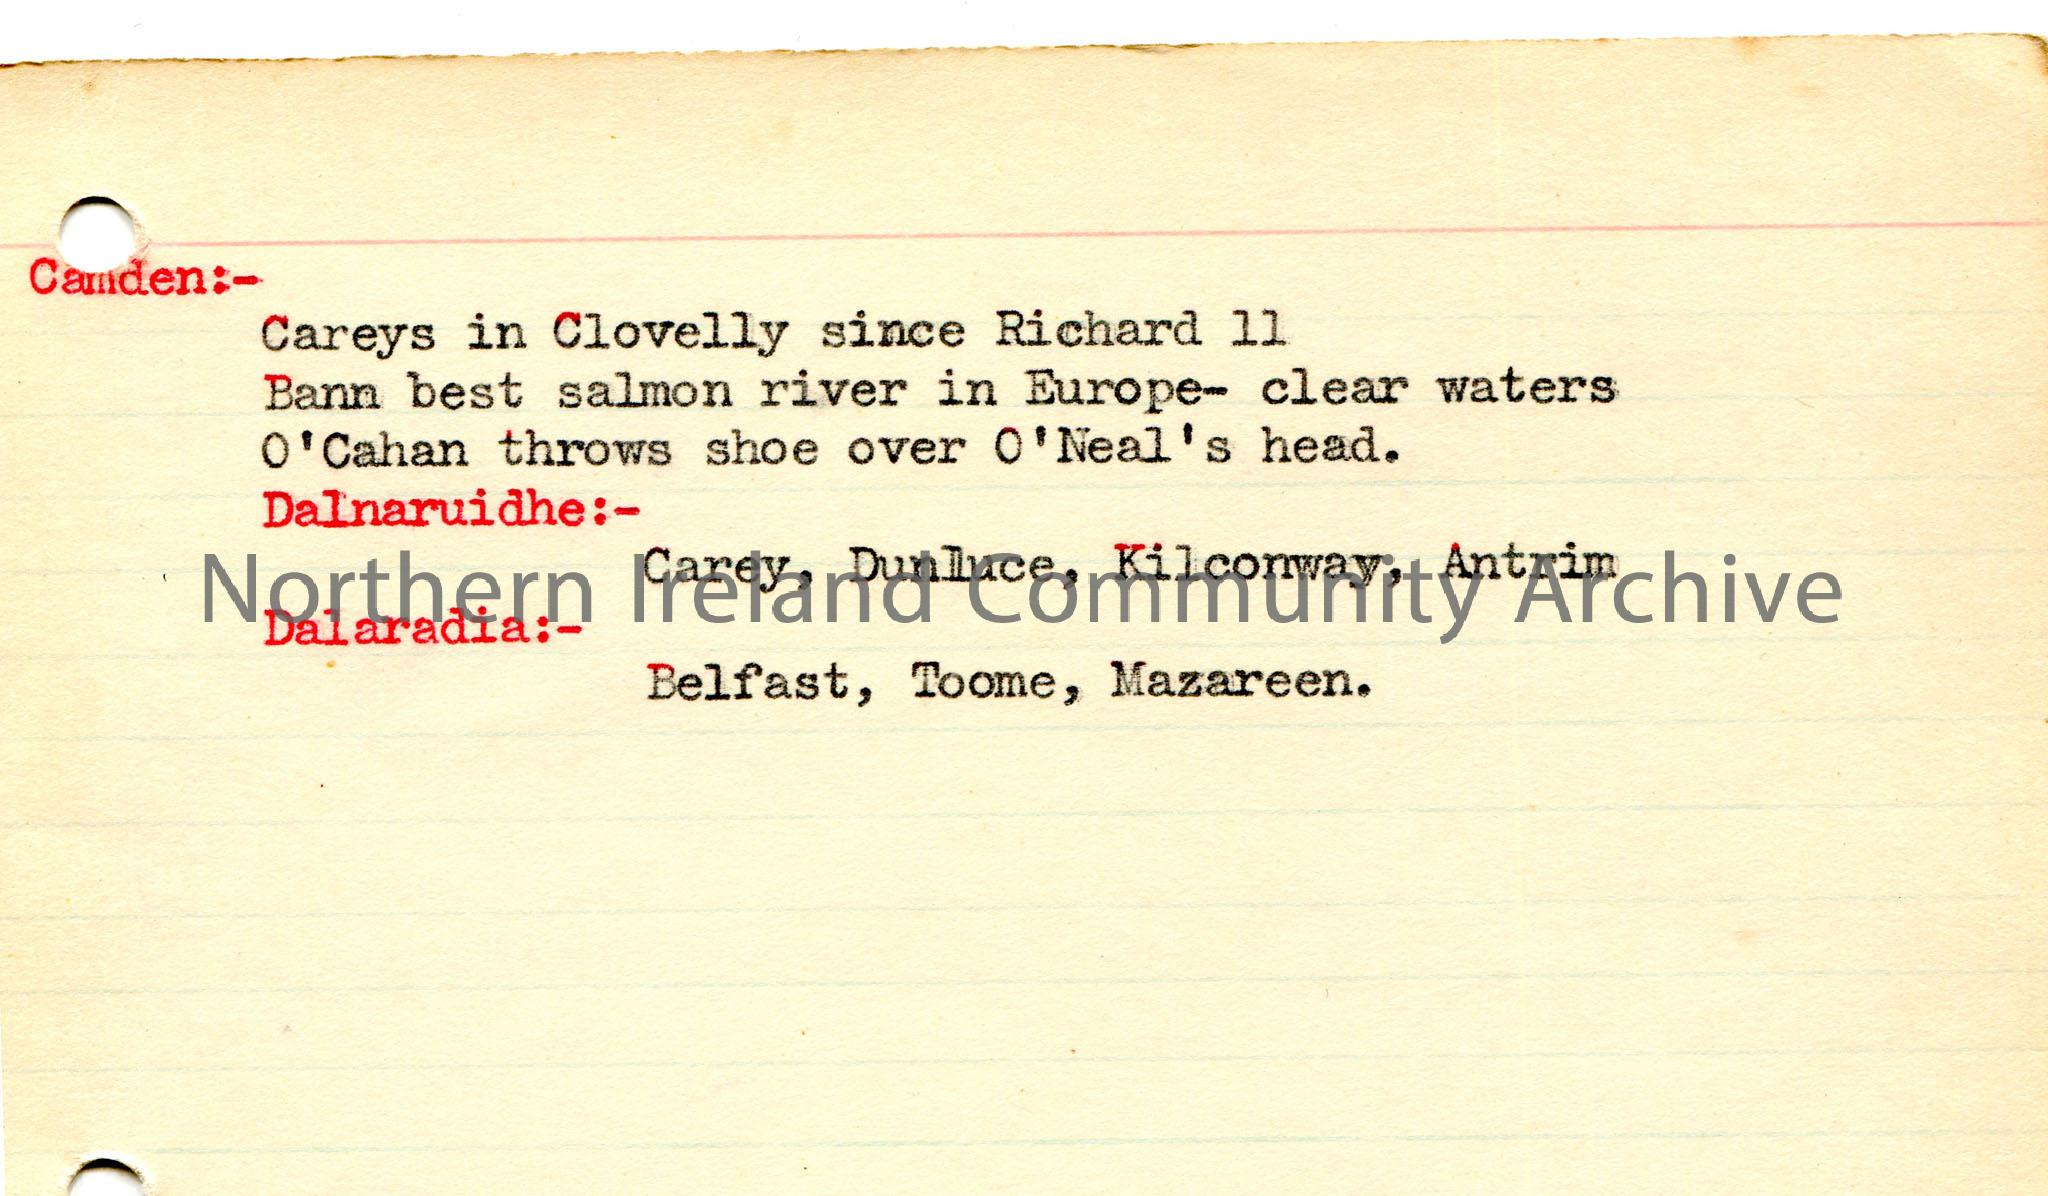 Camden:-
Careys in Clovelly since Richard 11
Bann best salmon river in Europe- clear waters
O'Cahan throws shoe over O'Neal's head.
Dalnaruidhe:-
Carey, Dunlluce, Kilconway, Antrim
Northern Ireland Community Archive
Dalaradia:-
Belfast, Toome, Mazareen.